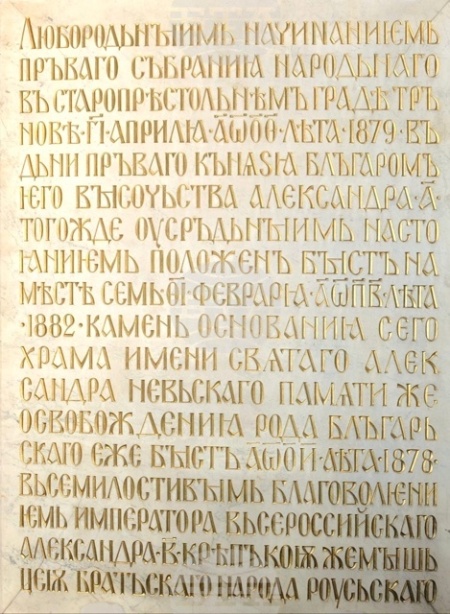 Любородьнꙑимь наѹинаниѥмь
прьваго събраниꙗ народьнаго
въ старопрѣстольнѣмь градѣ Тр
новѣ·г҃і·априлиꙗ·а҃ѡ҃о҃ѳ҃·лѣта·1879·въ
дьни прьваго кънѧѕꙗ блъгаромъ
ѥго вꙑсоѹьства александра·а҃·
тогожде оусрьдьнꙑимь насто
ꙗниѥмь положенъ бꙑстъ на
мѣстѣ семь·ѳ҃і·феврариꙗ·а҃ѡ҃п҃в҃·лѣта
·1882·камень основаниꙗ сего
храма имени свѧтаго алек
сандра невьскаго памѧти же
освобождению рода блъгарь
скаго еже бꙑстъ·а҃ѡ҃о҃и҃·лѣта·1878·
вьсемилостивꙑимь благоволюни
ѥмь императора вьсероссийскаго
александра·в҃·крѣпъкоіѫ же мꙑшь
цеіѫ братьскаго народа роусьскаго